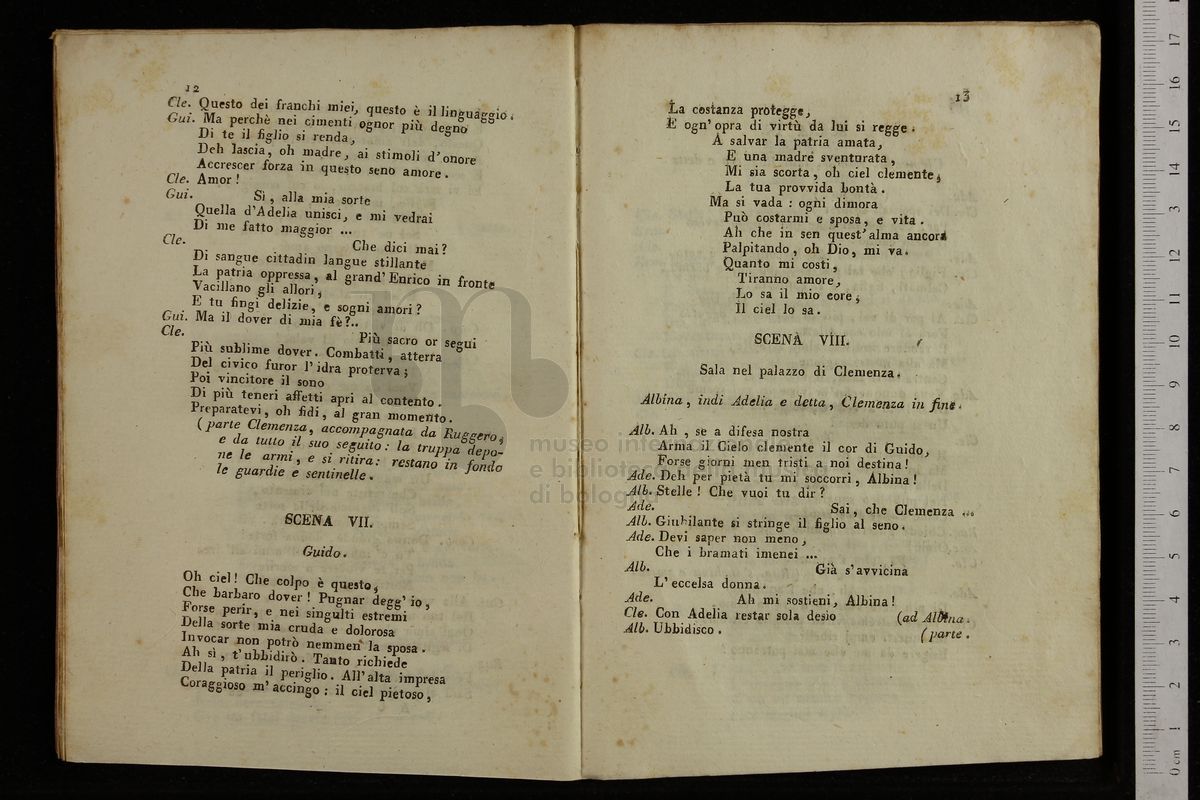 12
Cle. Questo dei franchi miei, questo è il linguaggio.
Gui. Ma perchè nei cimenti ognor più degno
Di te il figlio si renda,
Deh lascia, oh madre, ai stimoli d'onore
Accrescer forza in questo seno amore.
Cle. Amor!
Gui. Sì, alla mia sorte
Quella d'Adelia unisci, e mi vedrai
Di me fatto maggior ...
Cle. Che dici mai?
Di sangue cittadin langue stillante
La patria oppressa, al grand' Enrico in fronte
Vacillano gli allori,
E tu fingi delizie, e sogni amori?
Gui. Ma il dover di mia fè?..
Cle. Più sacro or segui
Più sublime dover. Combatti, atterra
Del civico furor l'idra proterva;
Poi vincitore il sono
Di più teneri affetti apri al contento.
Preparatevi, oh fidi, al gran momento.
(parte Clemenza, accompagnata da Ruggero,
e da tutto il suo seguito: la truppa depo-
ne le armi, e si ritira: restano in fondo
le guardie e sentinelle.
SCENA VII.
Guido.
Oh ciel! Che colpo è questo,
Che barbaro dover! Pugnar degg' io,
Forse perir, e nei singulti estremi
Della sorte mia cruda e dolorosa
Invocar non potrò nemmen la sposa.
Ah sì, t'ubbidirò. Tanto richiede
Della patria il periglio. All'alta impresa
Coraggioso m'accingo: il ciel pietoso,
13
La costanza protegge,
E ogn' opra di virtù da lui si regge.
A salvar la patria amata,
E una madre sventurata,
Mi sia scorta, oh ciel clemente,
La tua provvida bontà.
Ma si vada: ogni dimora
Può costarmi e sposa, e vita.
Ah che in sen quest' alma ancora
Palpitando, oh Dio, mi va.
Quanto mi costi,
Tiranno amore,
Lo sa il mio core,
Il ciel lo sa.
SCENA VIII.
Sala nel palazzo di Clemenza.
Albina, indi Adelia e detta, Clemenza in fine.
Alb. Ah, se a difesa nostra
Arma il Cielo clemente il cor di Guido,
Forse giorni men tristi a noi destina!
Ade. Deh per pietà tu mi soccorri, Albina!
Alb. Stelle! Che vuoi tu dir?
Ade. Sai, che Clemenza ...
Alb. Giubilante si stringe il figlio al seno.
Ade. Devi saper non meno,
Che i bramati imenei ...
Alb. Già s'avvicina
L'eccelsa donna.
Ade. Ah mi sostieni, Albina!
Cle. Con Adelia restar sola desio (ad Albina.
Alb. Ubbidisco. (parte.
museo internazionale
e biblioteca della musica
di bologna
0 cm 1 2 3 4 5 6 7 8 9 10 11 12 13 14 15 16 17